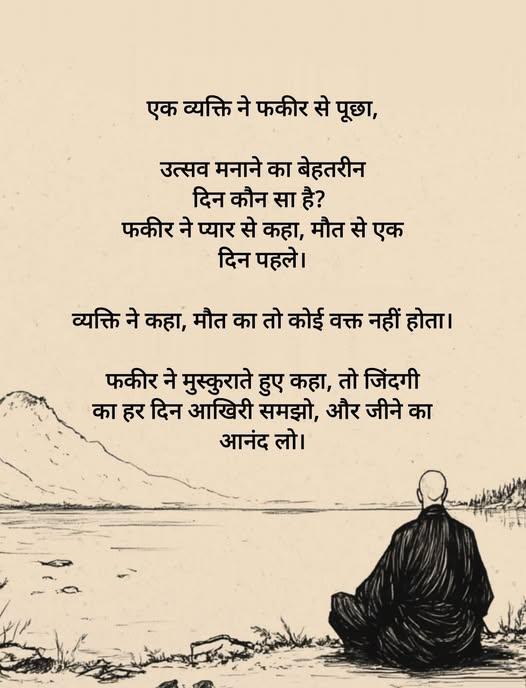 एक व्यक्ति ने फकीर से पूछा,
उत्सव मनाने का बेहतरीन
दिन कौन सा है?
फकीर ने प्यार से कहा, मौत से एक
दिन पहले।
व्यक्ति ने कहा, मौत का तो कोई वक्त नहीं होता।
फकीर ने मुस्कुराते हुए कहा, तो जिंदगी
का हर दिन आखिरी समझो, और जीने का
आनंद लो।